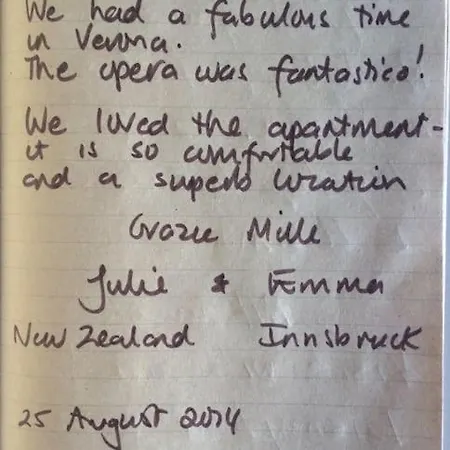 We had a fabulous time
in Verona.
The opera was fantastico!
We loved the apartment-
it is so comfortable
and a superb location
Grazie Mille
Julie & Emma
New Zealand Innsbruck
25 August 2014